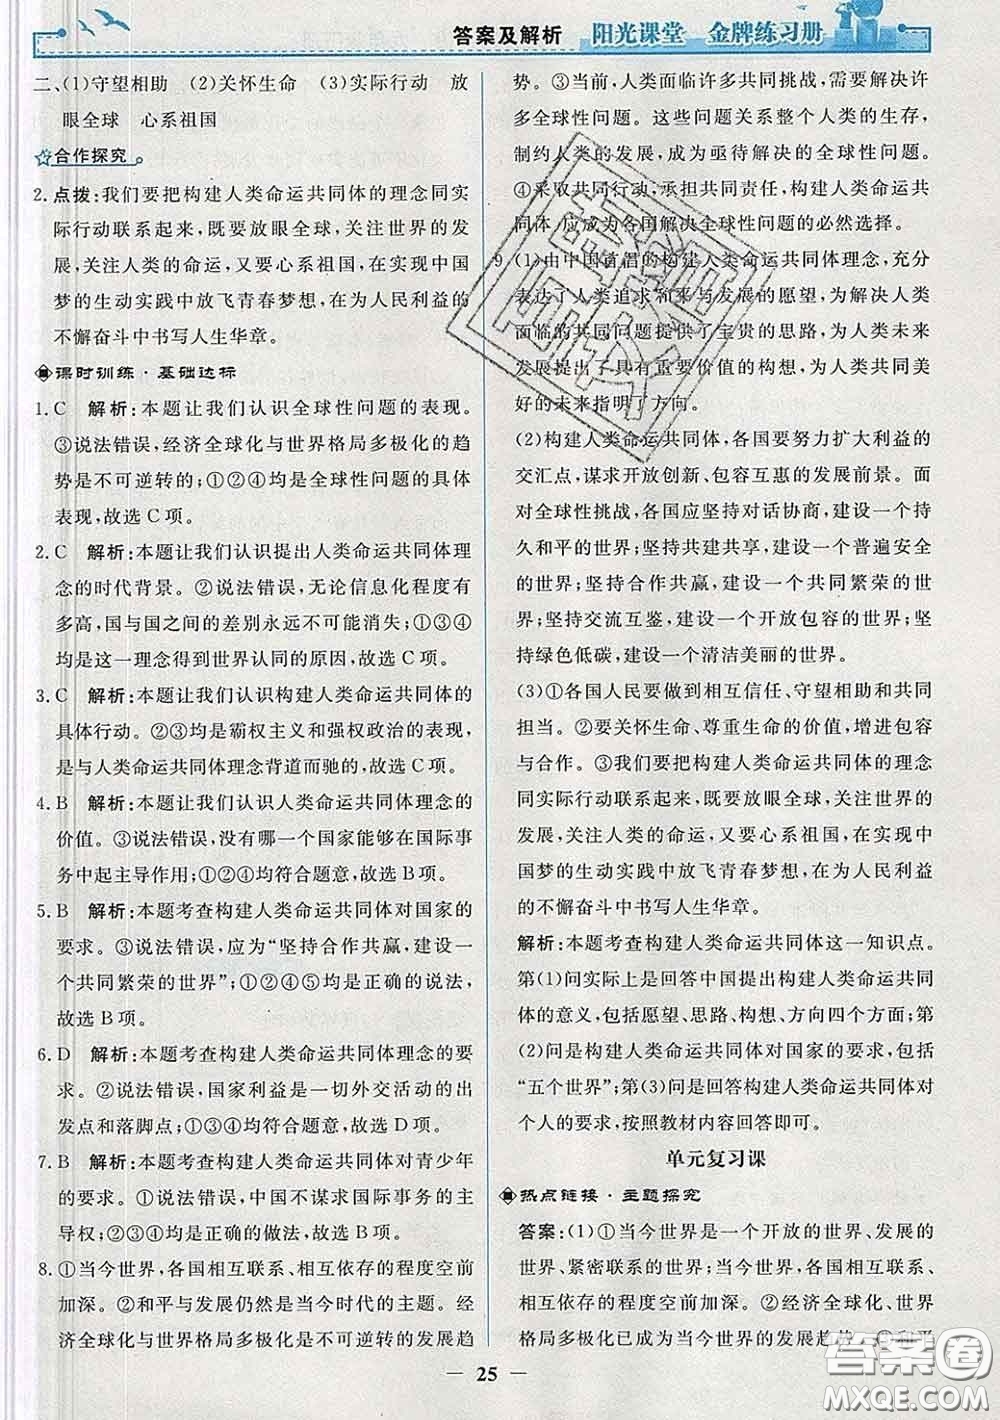 答案及解析 阳光课堂 金牌练习册
二、(1)守望相助 (2)关怀生命 (3)实际行动 放
眼全球 心系祖国
合作探究
2. 点拨:我们要把构建人类命运共同体的理念同实
际行动联系起来,既要放眼全球,关注世界的发
展,关注人类的命运,又要心系祖国,在实现中国
梦的生动实践中放飞青春梦想,在为人民利益的
不懈奋斗中书写人生华章。
课时训练·基础达标
1. C 解析:本题让我们认识全球性问题的表现。
③说法错误,经济全球化与世界格局多极化的趋
势是不可逆转的;①②④均是全球性问题的具体
表现,故选 C 项。
2. C 解析:本题让我们认识提出人类命运共同体理
念的时代背景。②说法错误,无论信息化程度有
多高,国与国之间的差别永远不可能消失;①③④
均是这一理念得到世界认同的原因,故选 C 项。
3. C 解析:本题让我们认识构建人类命运共同体的
具体行动。②③均是霸权主义和强权政治的表现,
是与人类命运共同体理念背道而驰的,故选 C 项。
4. B 解析:本题让我们认识人类命运共同体理念的
价值。③说法错误,没有哪一个国家能够在国际事
务中起主导作用;①②④均符合题意,故选 B 项。
5. B 解析:本题考查构建人类命运共同体对国家的
要求。③说法错误,应为“坚持合作共赢,建设一
个共同繁荣的世界”;①②④⑤均是正确的说法,
故选 B 项。
6. D 解析:本题考查构建人类命运共同体理念的要
求。②说法错误,国家利益是一切外交活动的出
发点和落脚点;①③④均符合题意,故选 D 项。
7. B 解析:本题考查构建人类命运共同体对青少年
的要求。①说法错误,中国不谋求国际事务的主
导权;②③④均是正确的做法,故选 B 项。
8. ①当今世界,各国相互联系、相互依存的程度空前
加深。②和平与发展仍然是当今时代的主题。经
济全球化与世界格局多极化是不可逆转的发展趋
势。③当前,人类面临许多共同挑战,需要解决许
多全球性问题。这些问题关系整个人类的生存,
制约人类的发展,成为亟待解决的全球性问题。
④采取共同行动,承担共同责任,构建人类命运共
同体,应成为各国解决全球性问题的必然选择。
9. (1)由中国首倡的构建人类命运共同体理念,充分
表达了人类追求和平与发展的愿望,为解决人类
面临的共同问题提供了宝贵的思路,为人类未来
发展提出了具有重要价值的构想,为人类共同美
好的未来指明了方向。
(2)构建人类命运共同体,各国要努力扩大利益的
交汇点,谋求开放创新、包容互惠的发展前景。面
对全球性挑战,各国应坚持对话协商,建设一个持
久和平的世界;坚持共建共享,建设一个普遍安全
的世界;坚持合作共赢,建设一个共同繁荣的世
界;坚持交流互鉴,建设一个开放包容的世界;坚
持绿色低碳,建设一个清洁美丽的世界。
(3)①各国人民要做到相互信任、守望相助和共同
担当。②要关怀生命、尊重生命的价值,增进包容
与合作。③我们要把构建人类命运共同体的理念
同实际行动联系起来,既要放眼全球,关注世界的
发展,关注人类的命运,又要心系祖国,在实现中
国梦的生动实践中放飞青春梦想,在为人民利益
的不懈奋斗中书写人生华章。
解析:本题考查构建人类命运共同体这一知识点。
第(1)问实际上是回答中国提出构建人类命运共同
体的意义,包括愿望、思路、构想、方向四个方面;第
(2)问是构建人类命运共同体对国家的要求,包括
“五个世界”;第(3)问是回答构建人类命运共同体对
个人的要求,按照教材内容回答即可。
单元复习课
热点链接·主题探究
答案:(1)①当今世界是一个开放的世界、发展的
世界、紧密联系的世界,各国之间的相互联系、
相互依存的程度空前加深。②经济全球化、世界
格局多极化已成为当今世界的发展趋势。③和平
25
答案圈
MXQE.COM